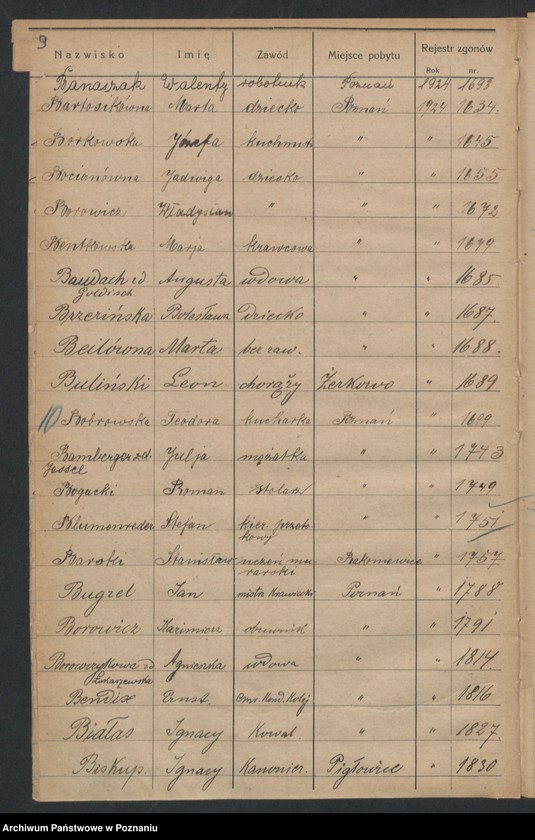 9
Nazwisko Imię Zawód Miejsce pobytu Rejestr zgonów
Rok nr.
Banaszak Walenty robotnik Poznań 1924 1693
Bartosikówna Marta dziecko Poznań 1924 1634.
Borkowska Józefa kuchmist " " 1645
Bocianówna Jadwiga dziecko " " 1655
Borowicz Władysław " " " 1672
Bentkowska Marja krawcowa " " 1679
Baudach zd. Augusta wdowa " " 1685
Goldisch
Brzezińska Bolesława Dziecko " " 1687.
Beilówna Marta bez zaw. " " 1688.
Buliński Leon chorąży Żerkowo " 1689
10 Bobrowska Teodora kucharka Poznań " 1699
Bamberger zd. Julja mężatka " " 1743
Jessel
Bogacki Roman stolarz " " 1749
Blumenreder Stefan kier. " " 1751
Barski Stanisław uczeń mu- " 1757
rarski
Bugzel Jan mistrz Krawiecki Poznań " 1788
Borowicz Kazimierz obuwnik " " 1791
Agnieszka wdowa " " 1814.
Łukaszewska
Bendix Ernst. Emr. Kond. Kolej " " 1816
Białas Ignacy Kowal " " 1827.
Biskup Ignacy Kanonier. Pigłowice " 1830
Archiwum Państwowe w Poznaniu